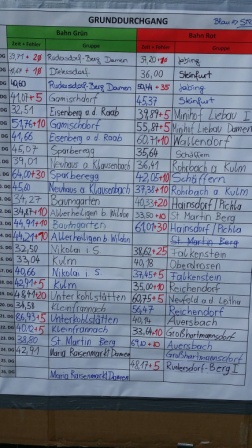 GRUNDDURCHGANG
Bahn Grün Bahn Rot
Zeit + Fehler Gruppe Zeit + Fehler Gruppe
Rudersdorf-Berg Damen 39,20 +10
36,00 Steinfurt
40,60 Rudersdorf-Berg Damen
41,07 +5 Gamischdorf 45,37 Steinfurt
Eisenberg a d Raab 37,84 +5 Minihof Liebau I
51,74 +10 Gamischdorf 55,84 +5 Minihof Liebau Damen
41,66 Eisenberg a d Raab 60,71 +10 Wallendorf
45,07 Sparberegg 35,64 Schäffern
39,01 Neuhaus a Klausenbach 36,41 Rohrbach a Kulm
64,00 +30 Sparberegg 42,06 +10 Schäffern
45,60 Neuhaus a Klausenbach 37,38 +10 Rohrbach a Kulm
34,27 Baumgarten 40,33 +20 Hainsdorf/Pichla
34,87 +10 Allerheiligen b Wildon 33,50 +10 St Martin Berg
44,91 +10 Baumgarten 61,01 +30 Hainsdorf/Pichla
44,21 +10 Allerheiligen b Wildon St. Martin Berg
32,50 Nikolai i S 38,62 +25 Falkenstein
33,04 Kulm 40,18
40,66 Nikolai i S 37,45 +5 Falkenstein
42,91 +5 Kulm 35,00 +10 Reichendorf
48,84 +20 Unterkohlstätten 60,75 +5 Neufeld a d Leitha
34,58 Kleinfrannach 56,47 Reichendorf
86,93 +5 Unterkohlstätten 40,14 Auersbach
40,12 +5 Kleinfrannach 33,64 +10 Großhartmannsdorf
38,80 St Martin Berg 69,10 +10 Auersbach
42,91 Maria Raisenmarkt Damen Großhartmannsdorf
48,17 +5 Rudersdorf-Berg I
Maria Raisenmarkt Damen